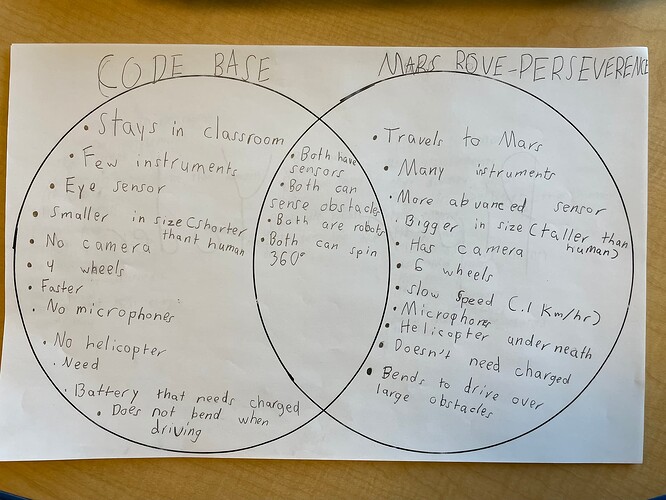 CODE BASE
MARS ROVE-PERSEVERENCE
• Stays in classroom
• Few instruments
• Eye sensor
• Smaller in size (shorter
thant human
• No camera
• 4 wheels
• Faster
• No microphones
• No helicopter
• Need
• Battery that needs charged
• Does not bend when
driving
• Both have
sensors
• Both can
sense obstacles
• Both are robots
• Both can spin
360°
• Travels to Mars
• Many istruments
• More abvanced sensor
• Bigger in size (taller than
human)
• Has camera
• 6 wheels
• slow speed (.1 Km/hr)
• Microphones
• Helicopter underneath
• Doesn't need charged
• Bends to drive over
large obstacles